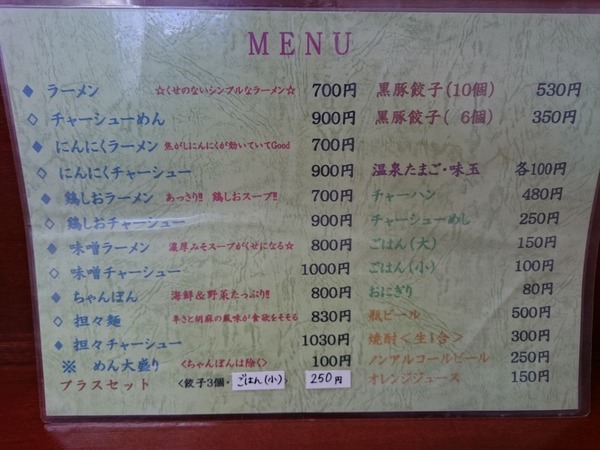 MENU
◆ ラーメン ☆くせのないシンプルなラーメン☆ 700円
◇ チャーシューめん 900円
◆ にんにくラーメン 焦がしにんにくが効いていてGood 700円
◇ にんにくチャーシュー 900円
◆ 鶏しおラーメン あっさり!! 鶏しおスープ!! 700円
◇ 鶏しおチャーシュー 900円
◆ 味噌ラーメン 濃厚みそスープがくせになる☆ 800円
◇ 味噌チャーシュー 1000円
◆ ちゃんぽん 海鮮&野菜たっぷり!! 800円
◇ 担々麺 辛さと胡麻の風味が食欲をそそる 830円
◆ 担々チャーシュー 1030円
※ めん大盛り <ちゃんぽんは除く> 100円
プラスセット <餃子3個・ごはん(小) 250円
黒豚餃子(10個) 530円
黒豚餃子( 6個) 350円
温泉たまご・味玉 各100円
チャーハン 480円
チャーシューめし 250円
ごはん(大) 150円
ごはん(小) 100円
おにぎり 80円
瓶ビール 500円
焼酎<生1合> 300円
ノンアルコールビール 250円
オレンジジュース 150円